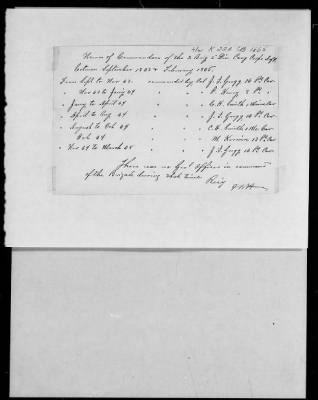 K 220 1865
Names of Commanders of the 2 Brig 2 Div Cavy Corps
between September 1863 & February 1865.
From Sept to Nov 63. commanded by Col J. I. Gregg 16 Pa Cav
" Nov 63 to Jany 64 " " P. Huey 8 Pa "
" Jany to April 64 " " C. H. Smith 1 Maine Cav
" April to Aug 64 " " J. I. Gregg 16 Pa Cav
" August to Oct 64 " " C. H. Smith 1 Me Cav
" Oct 64 " " M. Kerwin 13 Pa Cav
" Nov 64 to March 65 " " J. I. Gregg 16 Pa Cav
There was no Genl Officer in command
of the Brigade during that time.